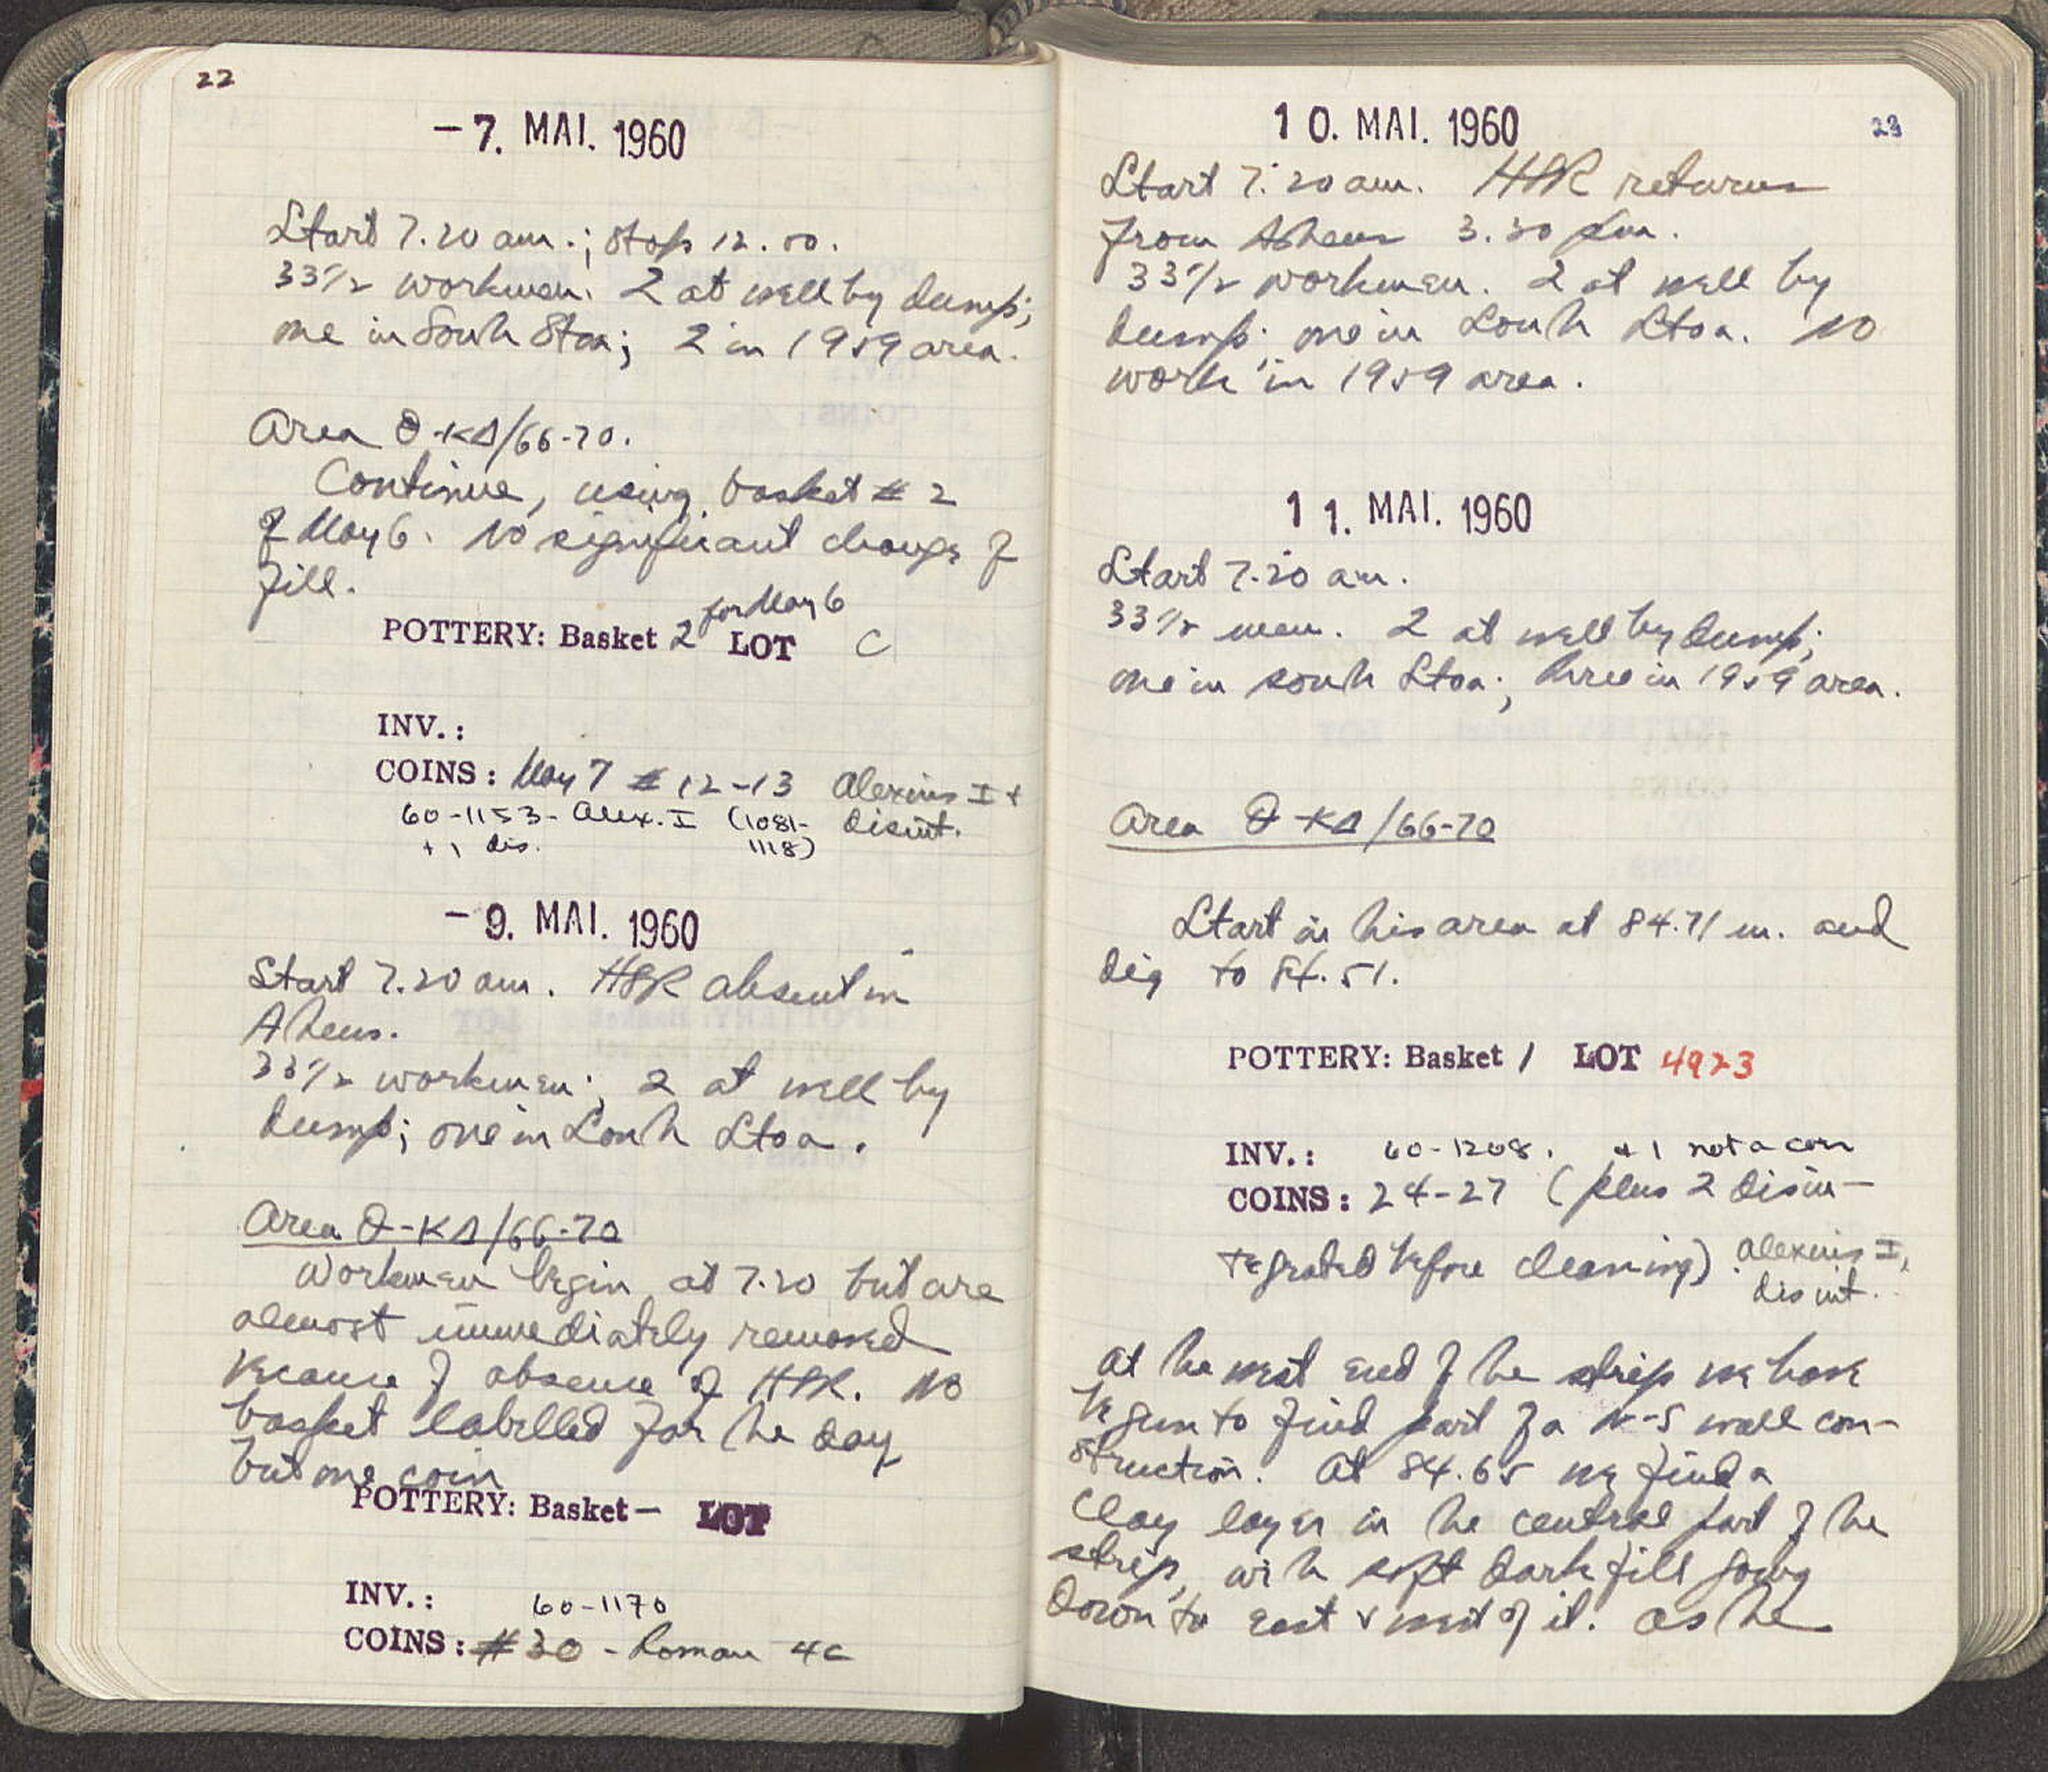 22
- 7. MAI. 1960
Start 7.20 am.; stop 12.00.
33 1/2 workmen. 2 at well by dump;
one in South Stoa; 2 in 1959 area.
Area Θ-ΚΔ/66-70.
Continue, using basket # 2
of May 6. No significant change of
fill.
for May 6
POTTERY: Basket 2 LOT C
INV.:
COINS: May 7 # 12-13 Alexius I +
60-1153- Alex. I (1081- disint.
+ 1 dis. 1118)
- 9. MAI. 1960
Start 7.20 am. HSR absent in
Athens.
33 1/2 workmen; 2 at well by
dump; one in South Stoa.
Area Θ-ΚΔ/66-70
Workmen begin at 7.20 but are
almost immediately removed
because of absence of HSR. No
basket labelled for the day
but one coin
POTTERY: Basket — LOT
INV.: 60-1170
COINS: #30 - Roman 4c
23
10. MAI. 1960
Start 7:20 am. HSR returns
from Athens 3.30 pm.
33 1/2 workmen. 2 at well by
dump; one in South Stoa. No
work in 1959 area.
11. MAI. 1960
Start 7.20 am.
33 1/2 men. 2 at well by dump;
one in South Stoa; three in 1959 area.
Area Θ-ΚΔ/66-70
Start in this area at 84.71 m. and
dig to 84.51.
POTTERY: Basket 1 LOT 4923
INV.: 60-1208. + 1 not a coin
COINS: 24-27 (plus 2 disin-
tegrated before cleaning) Alexius I,
disint.
At the west end of the strip we have
begun to find part of a N-S wall con-
struction. At 84.65 we find a
clay layer in the central part of the
strip, with soft dark fill going
down to east & west of it. As the